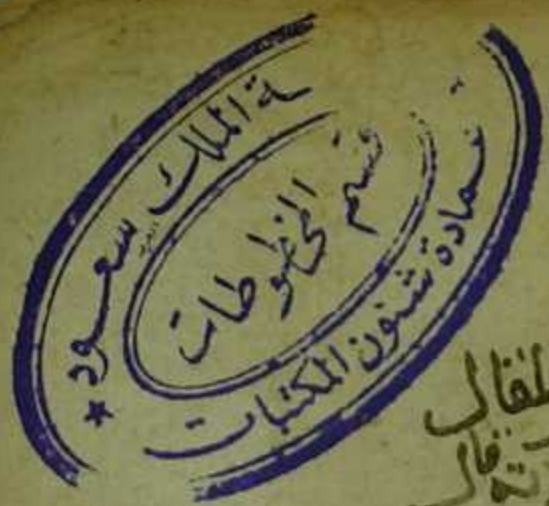 ـة الملك سعود
قسم المخطوطات
ـمادة شئون المكتبات